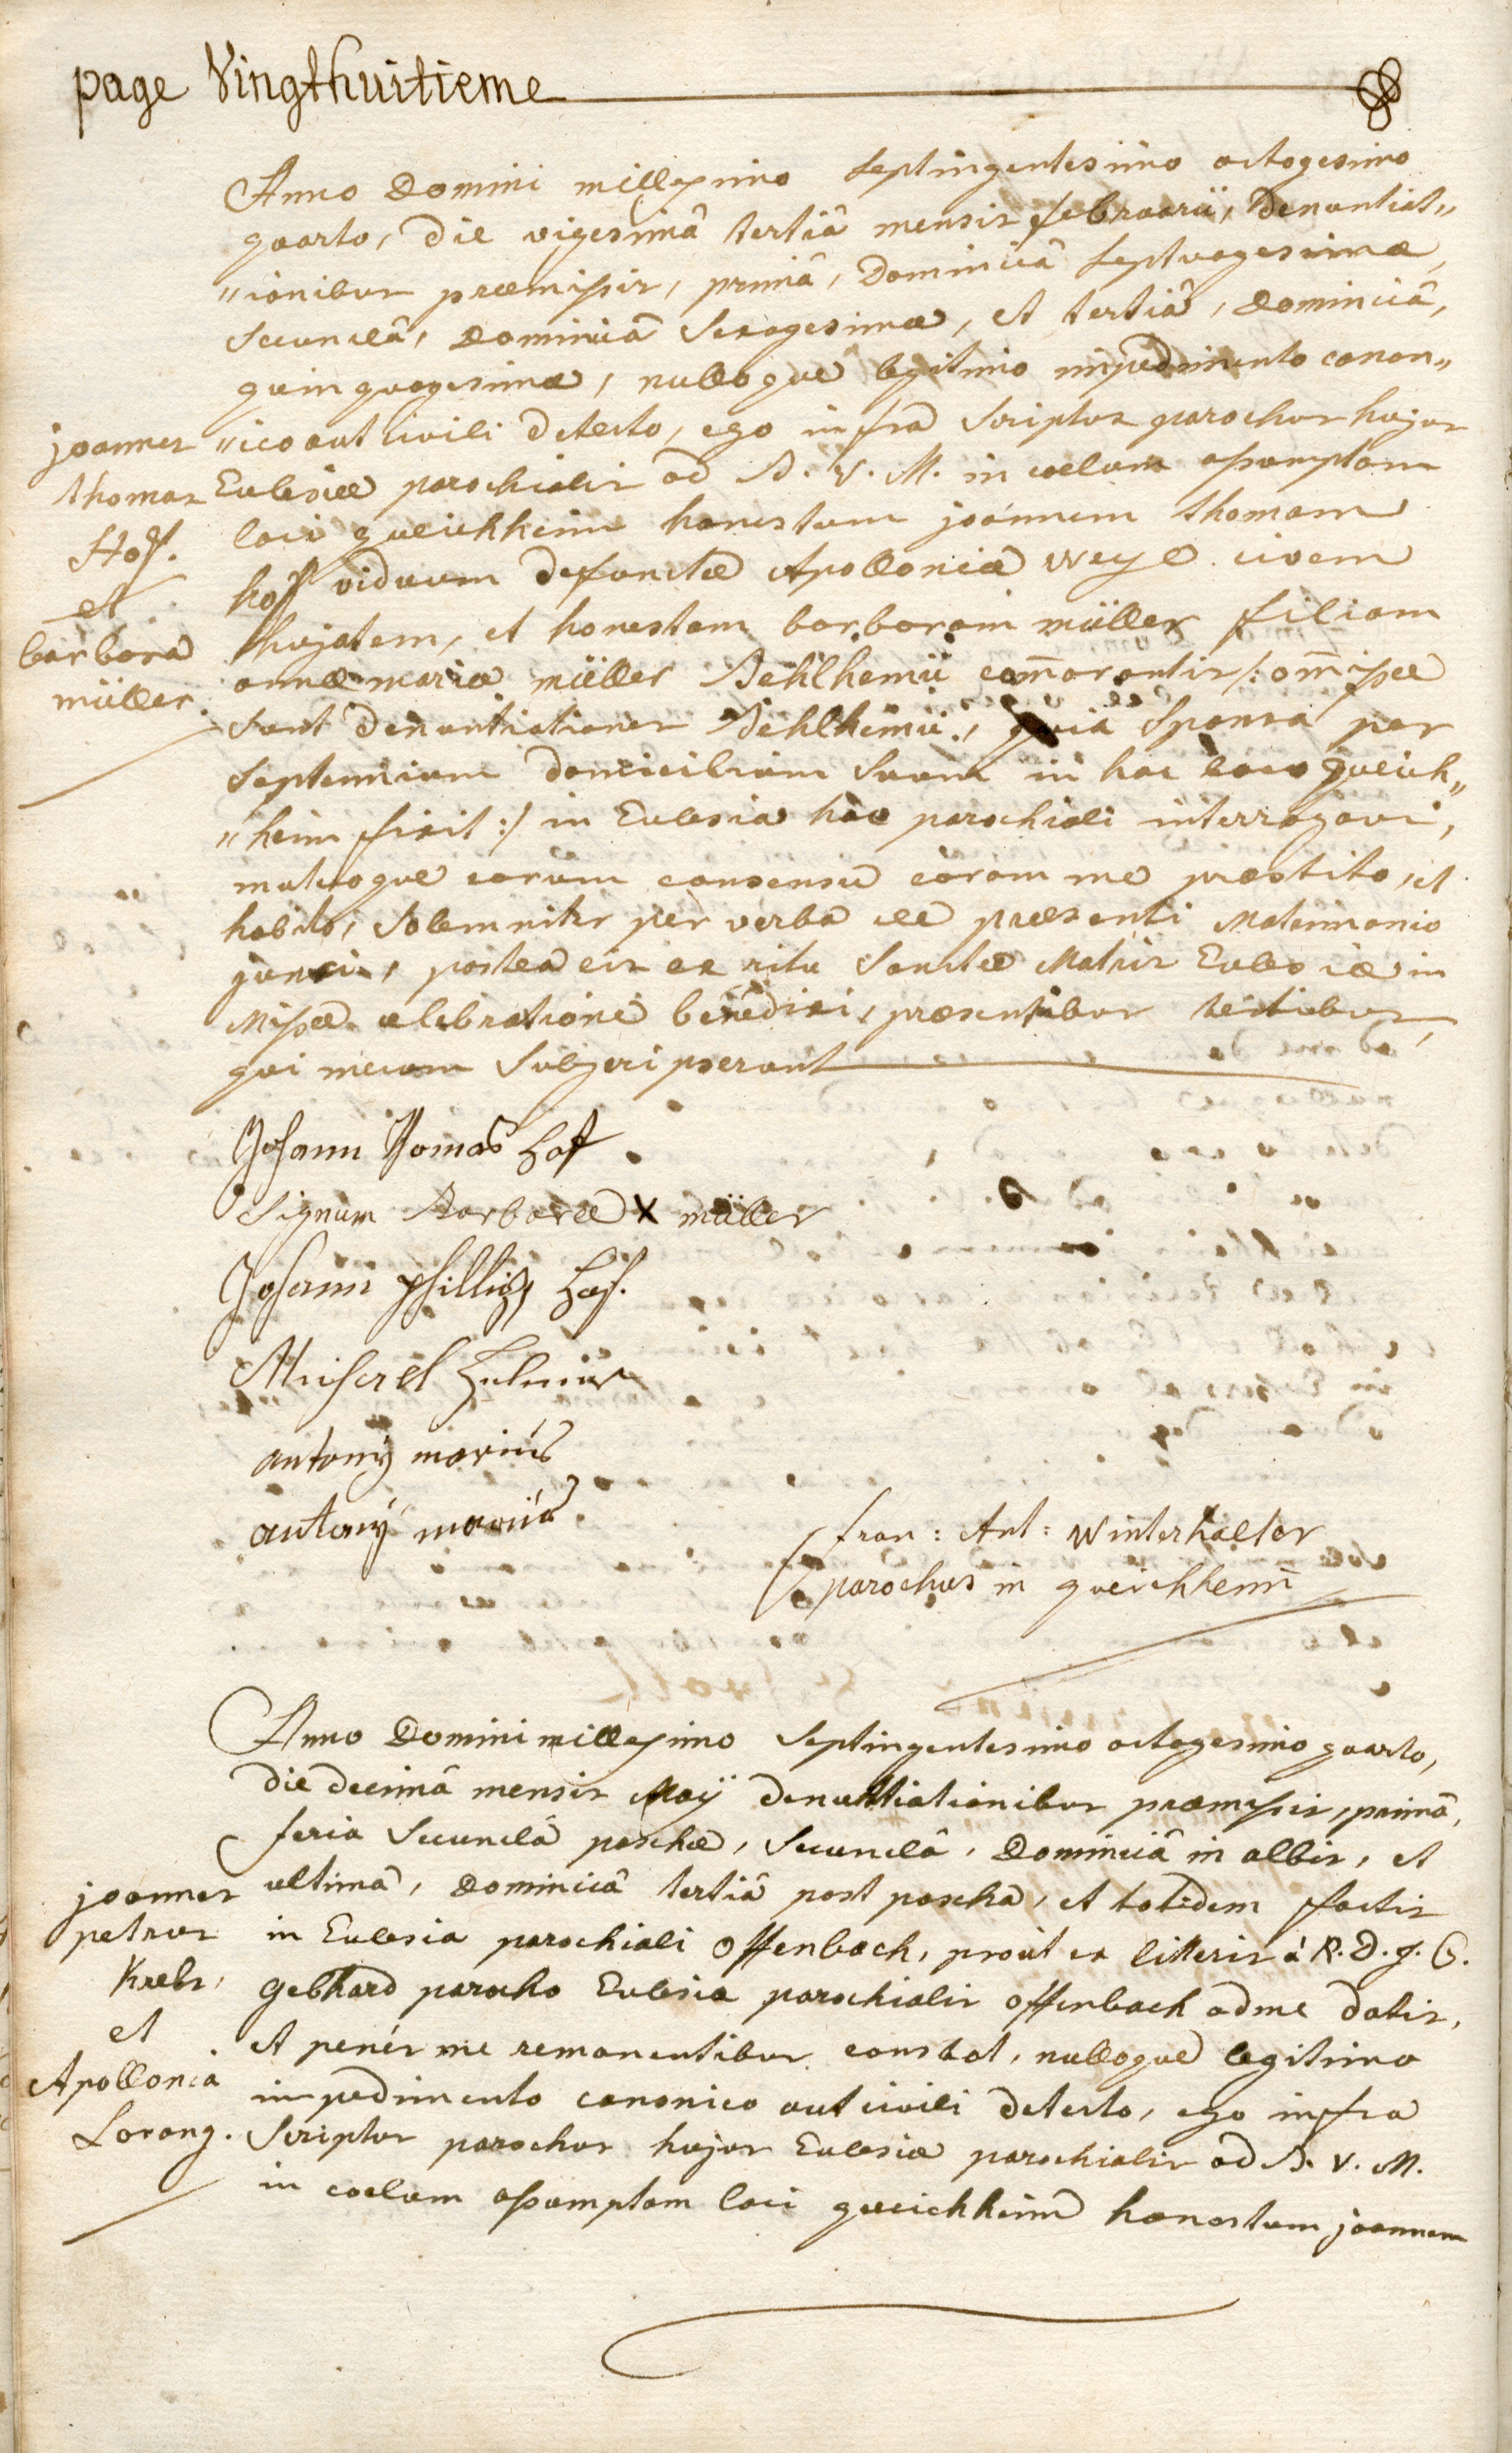 page Vingthuitieme
Anno Domini millesimo septingentesimo octogesimo
quarto, die vigesimâ tertiâ mensis februarii, denuntiat„
„ionibus præmissis, primâ, Dominicâ septuagesimæ,
secundâ, Dominicâ sexagesimæ, et tertiâ, Dominicâ,
quinquagesimæ, nulloque legitimo impedimento canon„
„ico aut civili detecto, ego infra scriptus parochus hujus
Ecclesiæ parochialis ad B. V. M. in coelum assumptam
loci queichheim honestum joannem thomam
hoff viduum defunctæ Apolloniæ Weyl. civem
hujatem, et honestam barbaram müller filiam
annæ mariæ müller Behlhemii com̄orantis /: om̄issæ
sunt denuntiationes Behlhemii, quia sponsa per
septennium domicilium suum in hoc loco queich„
„heim fixit :/ in Ecclesia hac parochiali interrogavi,
mutuoque eorum consensu coram me præstito, et
habito, solemniter per verba de præsenti Matrimonio
junxi, postea eis ex ritu sanctæ Matris Ecclesiæ in
Missæ celebratione benedixi, præsentibus testibus,
qui mecum subscripserunt
joannes
thomas
Hoff.
et
barbara
müller.
Johann Thomas Hoff
Signum Barbaræ X müller
Johann Phillipp Hoff.
Michael
antony marius
antony marius
fran: Ant: Winterhalter
parochus in queichheim
Anno Domini millesimo septingentesimo octogesimo quarto,
die decimâ mensis Maÿ denuntiationibus præmissis, primâ,
feria secundâ paschæ, secundâ, Dominicâ in albis, et
ultimâ, Dominicâ tertiâ post pascha, et totidem factis
in Ecclesia parochiali Offenbach, prout ex litteris à R. D. J. G.
Gebhard parocho Ecclesiæ parochialis Offenbach ad me datis,
et penès me remanentibus constat, nulloque legitimo
impedimento canonico aut civili detecto, ego infra
scriptus parochus hujus Ecclesiæ parochialis ad B. V. M.
in coelum assumptam loci queichheim honestum joannem
joannes
petrus
Krebs,
et
Apollonia
Lorang.